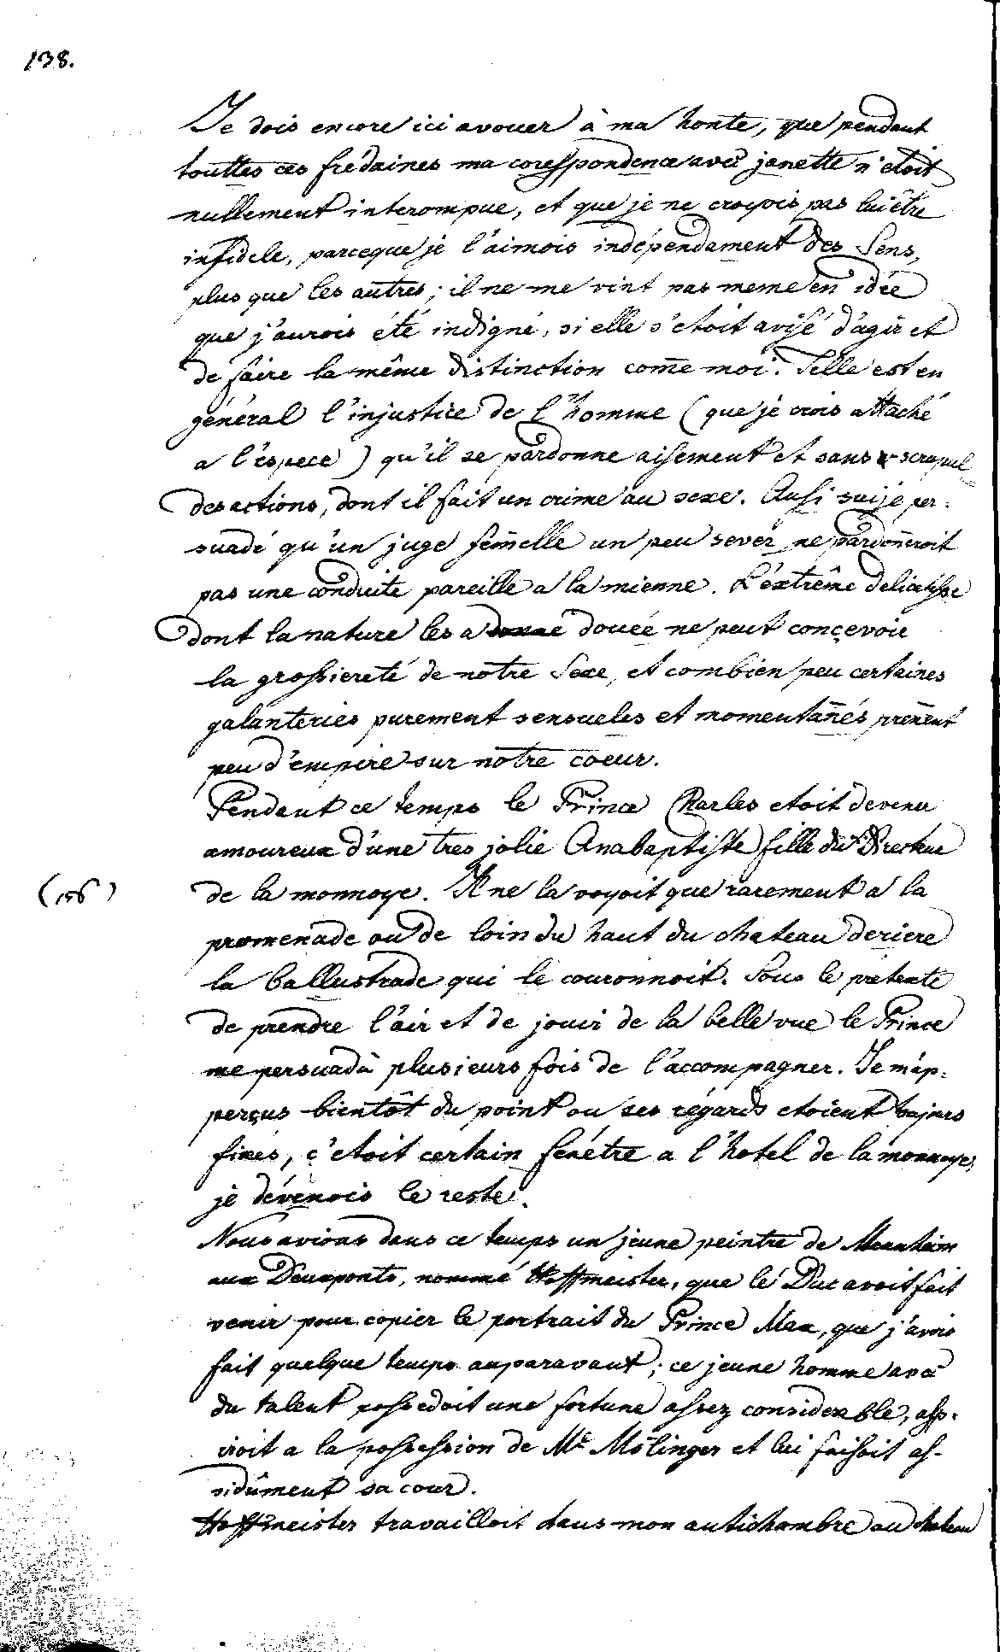 138.
Je dois encore ici avouer à ma honte, que pendant
touttes ces fredaines ma corespondence avec janette n'etoit
nullement interompue, et que je ne croyois pas lui être
infidele, parceque je l'aimois indépendament des Sens,
plus que les autres; il ne me vint pas meme en idée
que j'aurois été indigné, si elle s'etoit avisé d'agir et
de faire la même distinction com̄e moi. Telle est en
général l'injustice de l'homme (que je crois attaché
a l'espece) qu'il se pardonne aisement et sans scrupul
des actions, dont il fait un crime au sexe. Ausi suije per-
suadé qu'un juge fem̄elle un peu sever ne pardon̄eroit
pas une conduite pareille a la mienne. L'éxtrême delicatesse
dont la nature les a douée ne peut conçevoir
la grossiereté de notre Sexe, et combien peu certaines
galanteries purement sensueles et momentan̄és pren̄ent
peu d'empire sur notre coeur.
Pendant ce temps le Prince Charles etoit devenu
amoureux d'une tres jolie Anabaptiste fille du Directeur
(156) de la monnoye. Il ne la voyoit que rarement a la
promenade ou de loin du haut du chateau deriere
la ballustrade qui le couronnoit. Sous le pretexte
de prendre l'air et de jouir de la belle vue le Prince
me persuadà plusieurs fois de l'accompagner. Je m'ap-
perçus bientôt du point ou ses régards etoient toujours
fixés, c'etoit certain fenétre a l'hotel de la monnoye,
je dévenois le reste.
Nous avions dans ce temps un jeune peintre de Manheim
aux Deuxponts, nommé Hoffmeister, que lé Duc avoit fait
venir pour copier le portrait du Prince Max, que j'avois
fait quelque temps auparavant; ce jeune homme avec
du talent possedoit une fortune assez considerable, asp-
iroit a la possession de Mlle Mölinger et lui faisoit as-
sidûment sa cour.
Hoffmeister travailloit dans mon antichambre au chateau